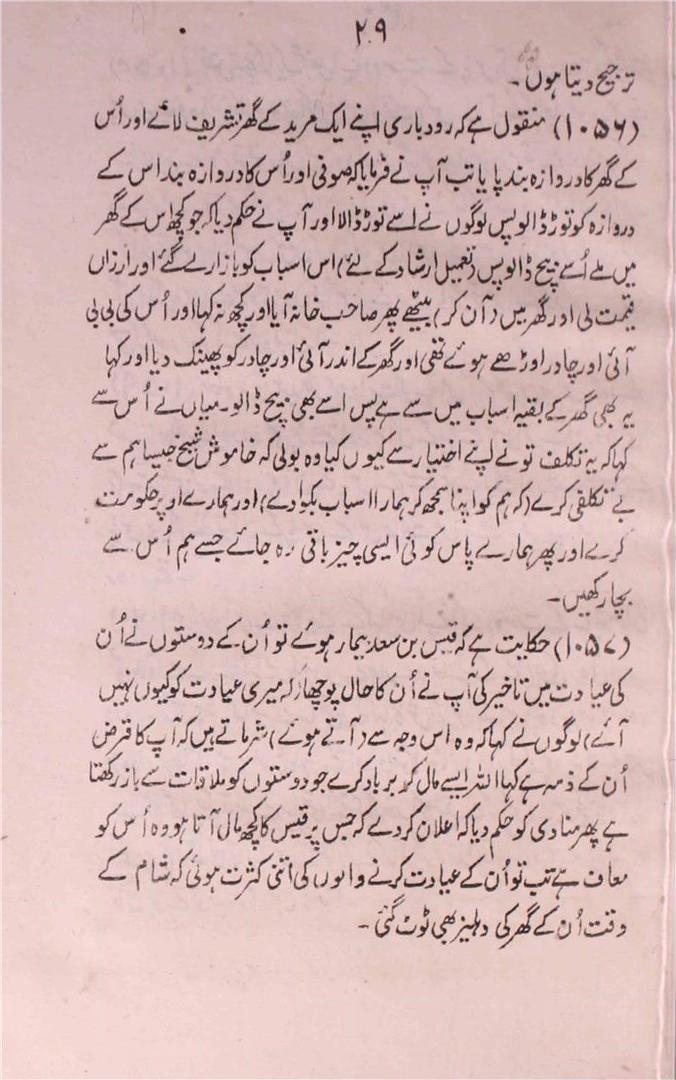 ۲۹
ترجیح دیتا ہوں۔
(۱۰۵۶) منقول ہے کہ رودباری اپنے ایک مرید کے گھر تشریف لائے اور اُس
کے گھر کا دروازہ بند پایا تب آپ نے فرمایا کہ صوفی اور اُس کا دروازہ بند اس کے
دروازہ کو توڑ ڈالو پس لوگوں نے اسے توڑ ڈالا اور آپ نے حکم دیا کہ جو کچھ اس کے گھر
میں ملے اُسے بیچ ڈالو پس (تعمیل ارشاد کے لئے) اس اسباب کو بازار لے گئے اور ارزاں
قیمت لی اور گھر میں (آن کر) بیٹھے پھر صاحب خانہ آیا اور کچھ نہ کہا اور اُس کی بی بی
آئی اور چادر اوڑھے ہوئے تھی اور گھر کے اندر آئی اور چادر کو پھینک دیا اور کہا
یہ بھی گھر کے بقیہ اسباب میں سے ہے پس اسے بھی بیچ ڈالو۔ میاں نے اُس سے
کہا کہ یہ تکلف تو نے اپنے اختیار سے کیوں کیا وہ بولی کہ خاموش شیخ جیسا ہم سے
بے تکلفی کرے (کہ ہم کو اپنا سمجھ کر ہمارا اسباب بکوا دے) اور ہمارے اوپر حکومت
کرے اور پھر ہمارے پاس کوئی ایسی چیز باقی رہ جائے جسے ہم اُس سے
بچا رکھیں۔
(۱۰۵۷) حکایت ہے کہ قیس بن سعد بیمار ہوئے تو اُن کے دوستوں نے اُن
کی عیادت میں تاخیر کی آپ نے اُن کا حال پوچھا (کہ میری عیادت کو کیوں نہیں
آئے) لوگوں نے کہا کہ وہ اس وجہ سے (آتے ہوئے) شرماتے ہیں کہ آپ کا قرض
اُن کے ذمہ ہے کہا اللہ ایسے مال کو برباد کرے جو دوستوں کو ملاقات سے باز رکھتا
ہے پھر منادی کو حکم دیا کہ اعلان کر دے کہ جس پر قیس کا کچھ مال آتا ہو وہ اُس کو
معاف ہے تب تو اُن کے عیادت کرنے والوں کی اتنی کثرت ہوئی کہ شام کے
وقت اُن کے گھر کی دہلیز بھی ٹوٹ گئی۔